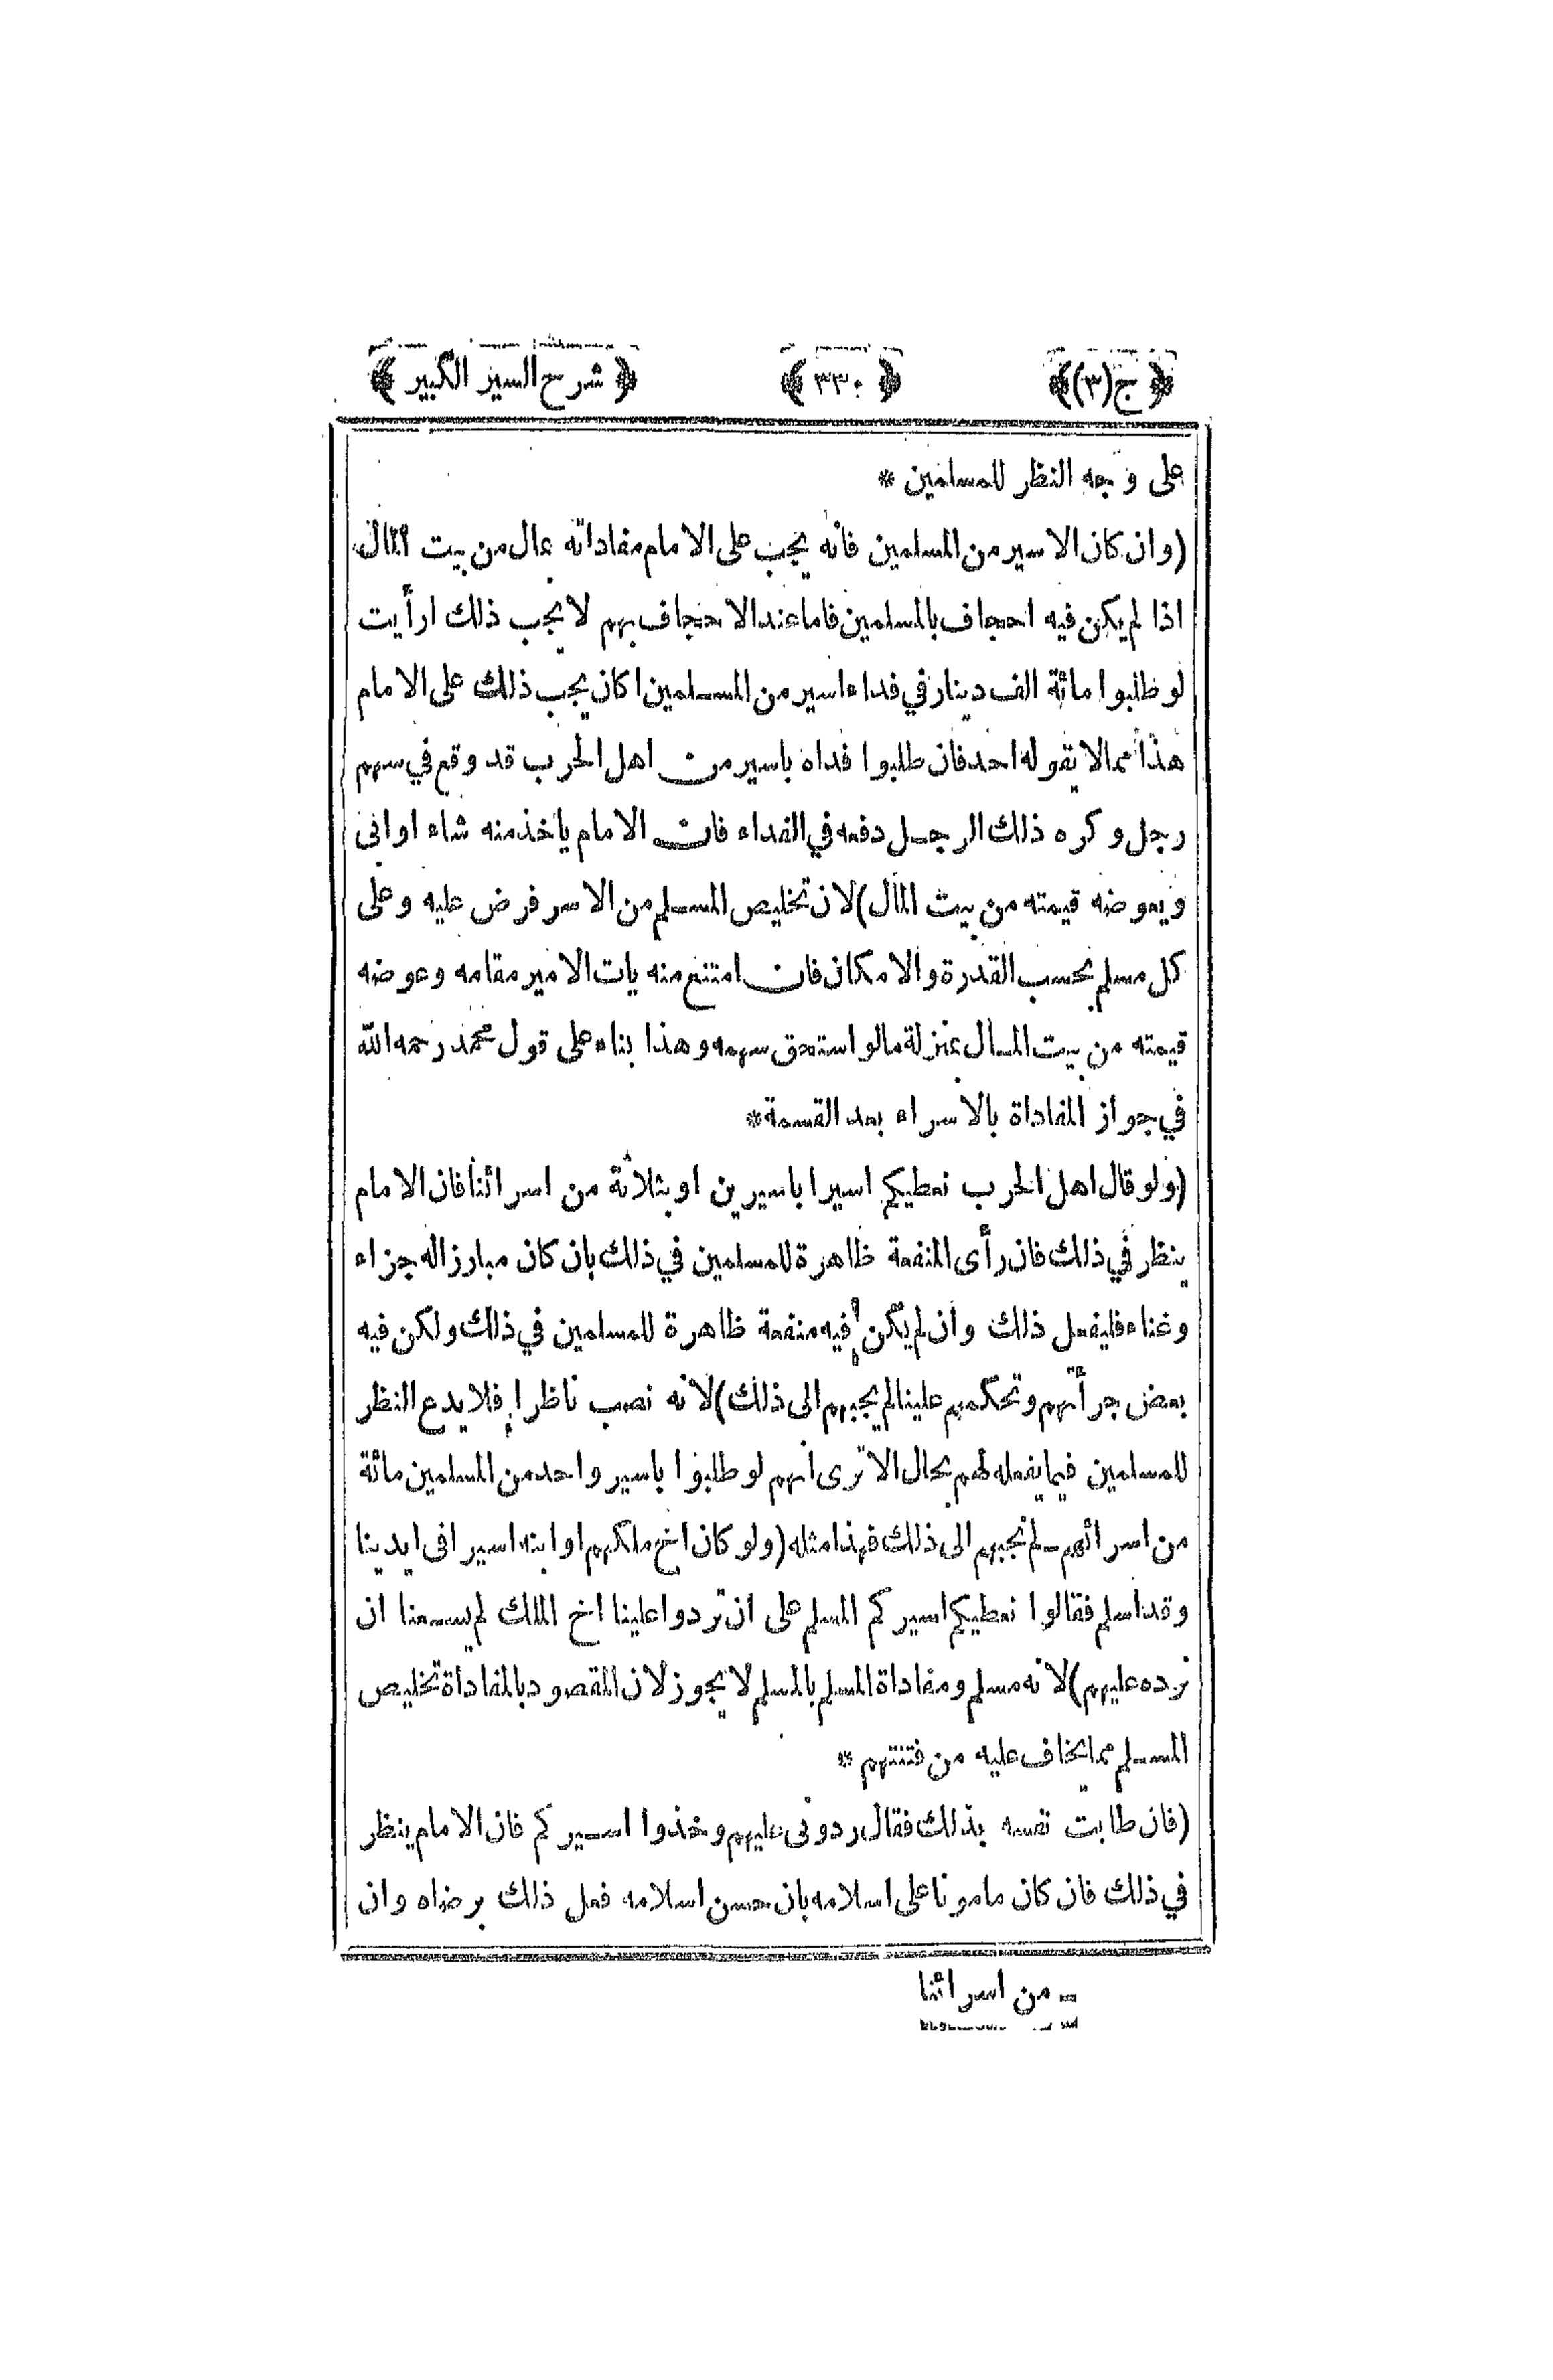 ﴿ج(٣)﴾ ﴿٣٣٠﴾ ﴿شرح السير الكبير﴾
على وجه النظر للمسلمين *
(وان كان الاسير من المسلمين فانه يجب على الامام مفاداته بمال من بيت المال
اذا لم يكن فيه احجاف بالمسلمين فاما عند الاحجاف بهم لا يجب ذلك ارأيت
لو طلبوا مائة الف دينار في فداء اسير من المسلمين اكان يجب ذلك على الامام
هذا مما لا يقوله احد فان طلبوا فداه باسير من اهل الحرب قد وقع في سهم
رجل وكره ذلك الرجل دفعه في الفداء فان الامام ياخذ منه شاء او ابى
ويعوضه قيمته من بيت المال) لان تخليص المسلم من الاسر فرض عليه وعلى
كل مسلم بحسب القدرة والامكان فان امتنع منه يات الامير مقامه وعوضه
قيمته من بيت المال بمنزلة ما لو استحق سهمه وهذا بناء على قول محمد رحمه الله
في جواز المفاداة بالاسراء بعد القسمة *
(ولو قال اهل الحرب نعطيكم اسيرا باسيرين او بثلاثة من اسرائنا فان الامام
ينظر في ذلك فان رأى المنفعة ظاهرة للمسلمين في ذلك بان كان مبارزا له جزاء
وغناء فليفعل ذلك وان لم يكن فيه منفعة ظاهرة للمسلمين في ذلك ولكن فيه
بعض جرأتهم وتحكمهم علينا لم يجبهم الى ذلك) لانه نصب ناظرا فلا يدع النظر
للمسلمين فيما يفعله لهم بحال الا ترى انهم لو طلبوا باسير واحد من المسلمين مائة
من اسرائهم لم نجبهم الى ذلك فهذا مثله (ولو كان اخ ملكهم او ابنه اسيرا في ايدينا
وقد اسلم فقالوا نعطيكم اسيركم المسلم على ان تردوا علينا اخ الملك لم يسعنا ان
نرده عليهم) لانه مسلم ومفاداة المسلم بالمسلم لا يجوز لان المقصود بالمفاداة تخليص
المسلم مما يخاف عليه من فتنتهم *
(فان طابت نفسه بذلك فقال ردونى عليهم وخذوا اسيركم فان الامام ينظر
في ذلك فان كان مامونا على اسلامه بان حسن اسلامه فعل ذلك برضاه وان
ــ من اسرائنا